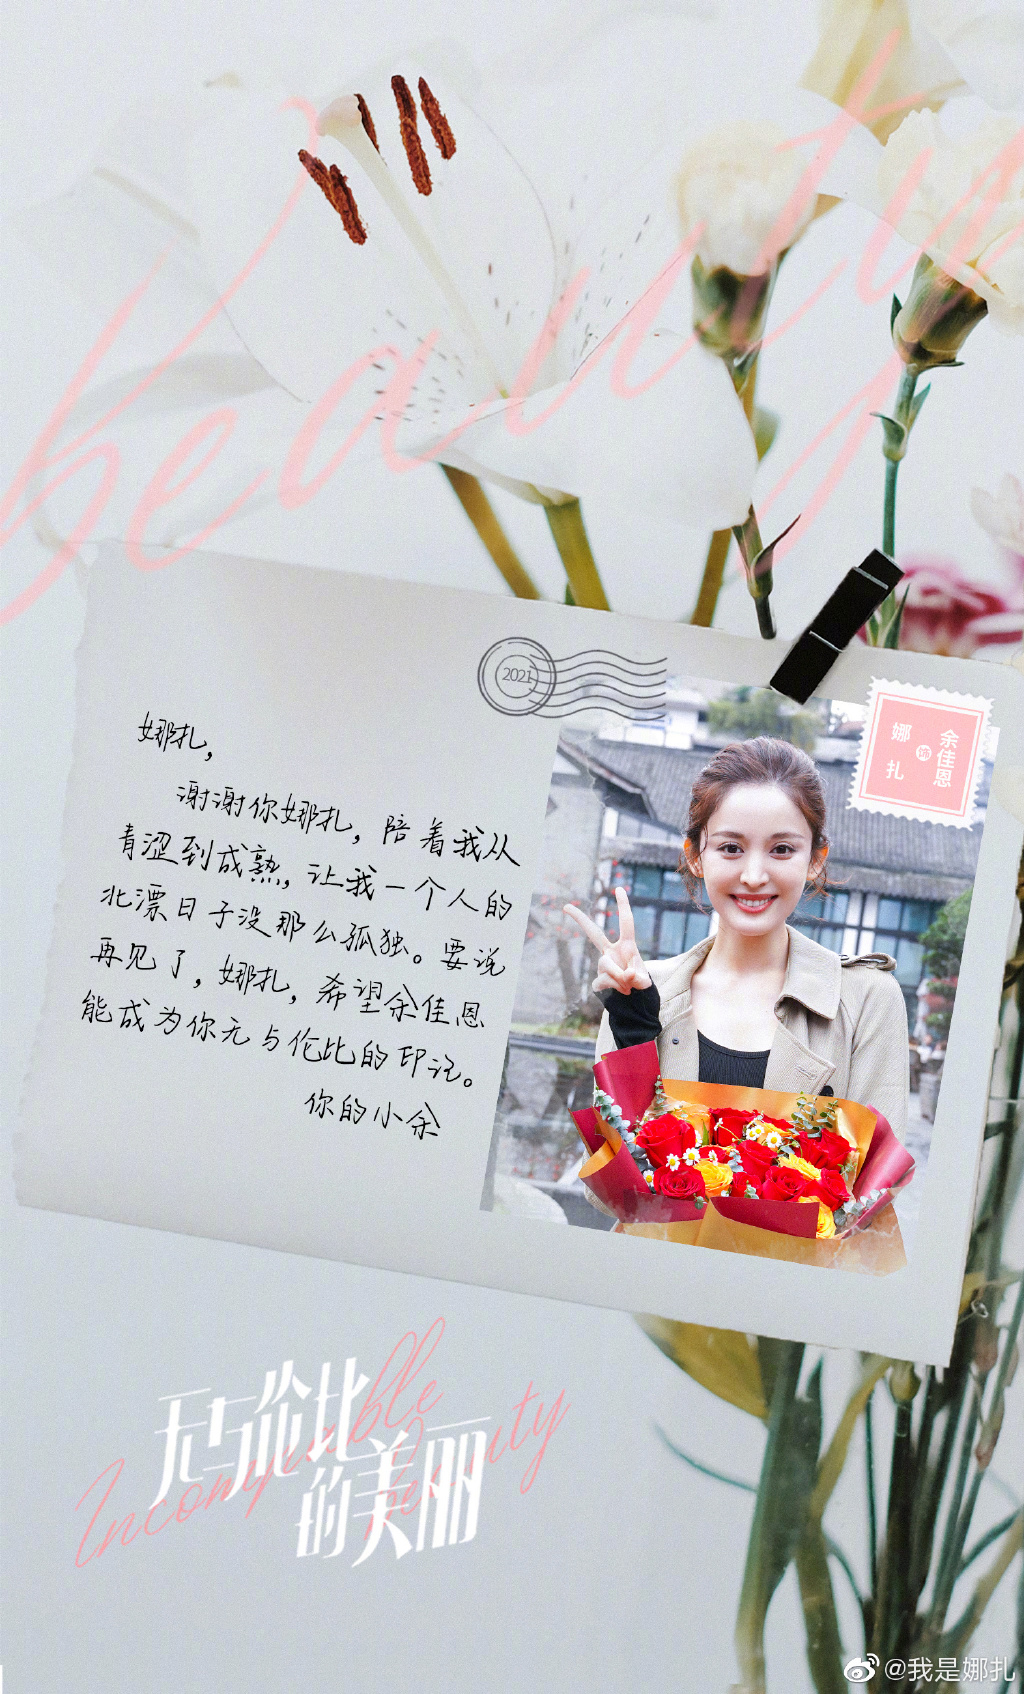 beauty
2021
娜扎
饰
余佳恩
娜扎，
谢谢你娜扎，陪着我从
青涩到成熟，让我一个人的
北漂日子没那么孤独。要说
再见了，娜扎，希望余佳恩
能成为你无与伦比的印记。
你的小余
无与伦比
的美丽
Incomparable
beauty
@我是娜扎